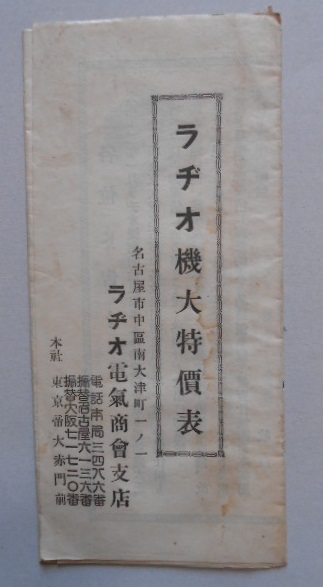 ラヂオ機大特價表
名古屋市中區南大津町一ノ一
ラヂオ電氣商會支店
電話南局三四八六番
振替名古屋六一三六番
振替大阪七一七二〇番
本社 東京帝大赤門前